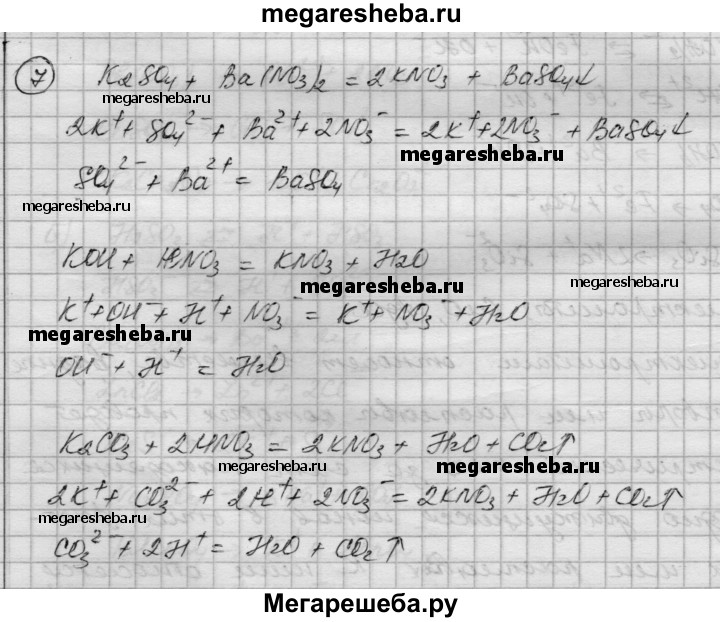 megaresheba.ru
7 K2SO4 + Ba(NO3)2 = 2KNO3 + BaSO4↓
megaresheba.ru
megaresheba.ru
2K⁺ + SO4²⁻ + Ba²⁺ + 2NO3⁻ = 2K⁺ + 2NO3⁻ + BaSO4↓
megaresheba.ru
SO4²⁻ + Ba²⁺ = BaSO4
megaresheba.ru
KOH + HNO3 = KNO3 + H2O
megaresheba.ru
megaresheba.ru
K⁺ + OH⁻ + H⁺ + NO3⁻ = K⁺ + NO3⁻ + H2O
megaresheba.ru
OH⁻ + H⁺ = H2O
K2CO3 + 2HNO3 = 2KNO3 + H2O + CO2↑
megaresheba.ru
megaresheba.ru
2K⁺ + CO3²⁻ + 2H⁺ + 2NO3⁻ = 2KNO3 + H2O + CO2↑
megaresheba.ru
CO3²⁻ + 2H⁺ = H2O + CO2↑
megaresheba.ru
Мегарешеба.ру